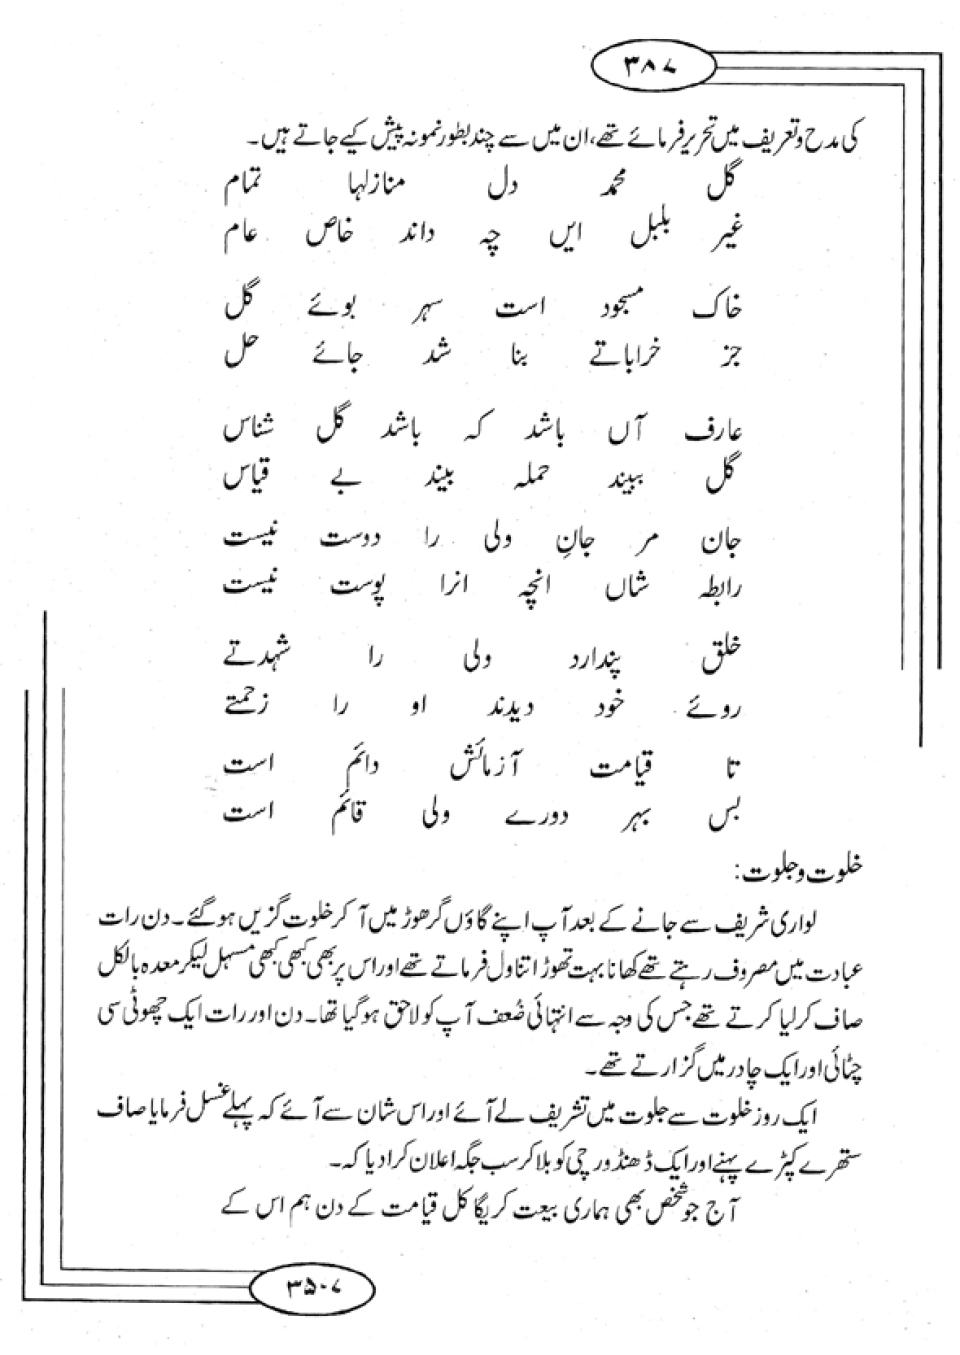 ۳۸۷
کی مدح و تعریف میں تحریر فرمائے تھے، ان میں سے چند بطور نمونہ پیش کیے جاتے ہیں۔
گل محمد دل منازلہا تمام
غیر بلبل ایں چہ داند خاص عام
خاک مسجود است سہر بوئے گل
جز خراباتے بنا شد جائے حل
عارف آں باشد کہ باشد گل شناس
گل ببیند حملہ بیند بے قیاس
جان مر جانِ ولی را دوست نیست
رابطہ شاں انچہ انرا پوست نیست
خلق پندارد ولی را شہدتے
روئے خود دیدند او را زحمتے
تا قیامت آزمائش دائم است
بس بہر دورے ولی قائم است
خلوت و جلوت:
لواری شریف سے جانے کے بعد آپ اپنے گاؤں گرھوڑ میں آ کر خلوت گزیں ہو گئے۔ دن رات
عبادت میں مصروف رہتے تھے کھانا بہت تھوڑا تناول فرماتے تھے اور اس پر بھی کبھی کبھی مسہل لیکر معدہ بالکل
صاف کر لیا کرتے تھے جس کی وجہ سے انتہائی ضُعف آپ کو لاحق ہو گیا تھا۔ دن اور رات ایک چھوٹی سی
چٹائی اور ایک چادر میں گزارتے تھے۔
ایک روز خلوت سے جلوت میں تشریف لے آئے اور اس شان سے آئے کہ پہلے غسل فرمایا صاف
ستھرے کپڑے پہنے اور ایک ڈھنڈورچی کو بلا کر سب جگہ اعلان کرا دیا کہ۔
آج جو شخص بھی ہماری بیعت کریگا کل قیامت کے دن ہم اس کے
۳۵۰۷